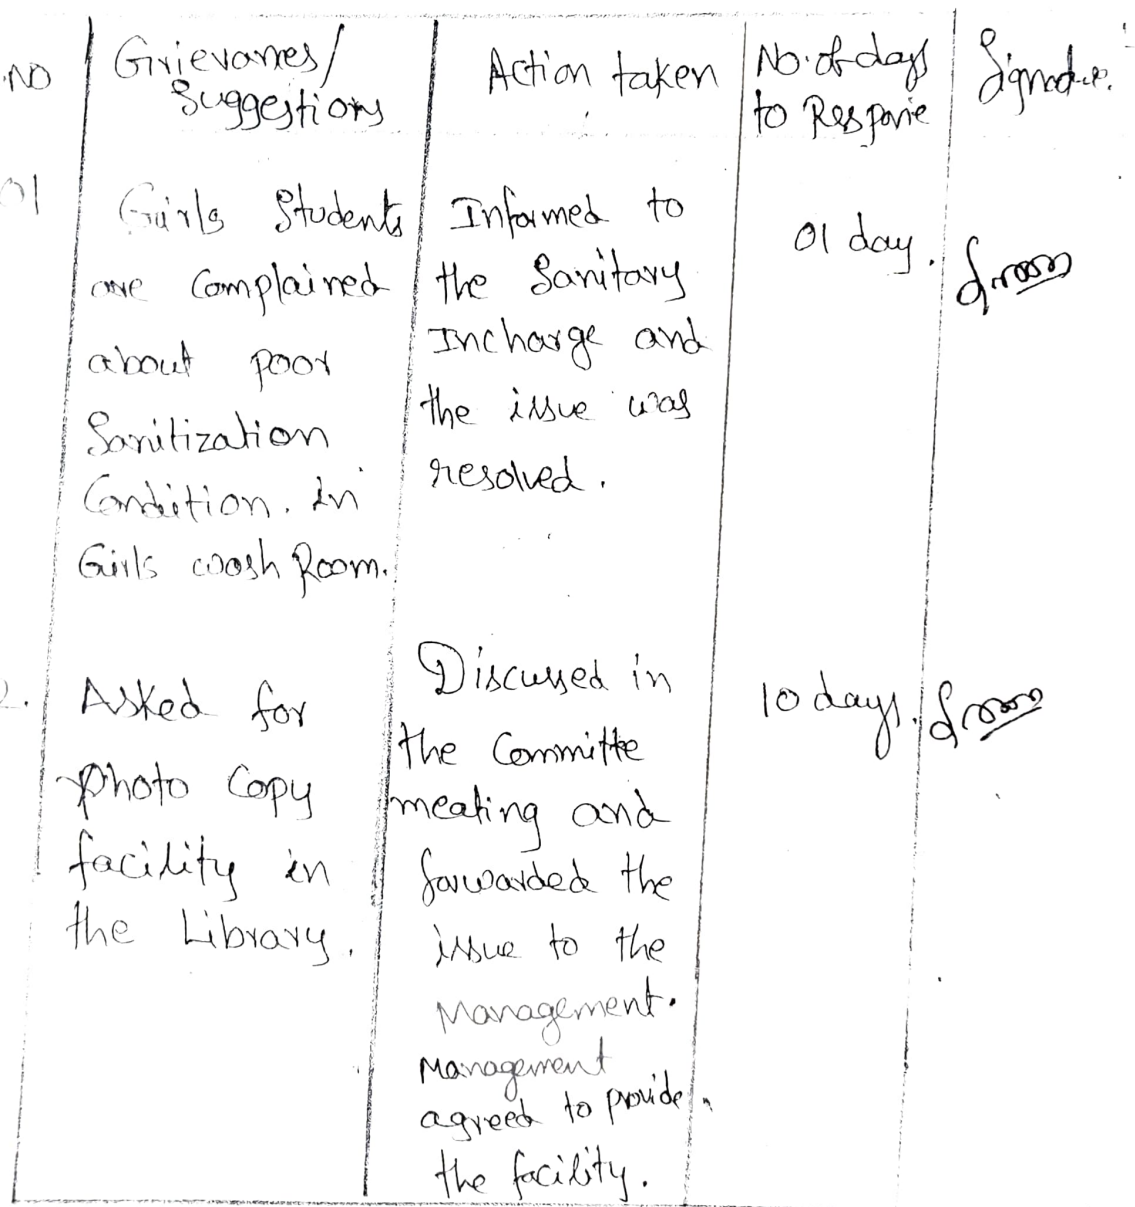 NO
Grievances/
Suggestions
Action taken
No. of days
to Response
Signature.
01
Girls Students
are Complained
about poor
Sanitization
Condition. in
Girls wash Room.
Informed to
the Sanitary
Incharge and
the issue was
resolved.
01 day.
2.
Asked for
photo Copy
facility in
the Library.
Discussed in
the Committe
meating and
forwarded the
issue to the
Management.
Management
agreed to provide.
the facility.
10 days.